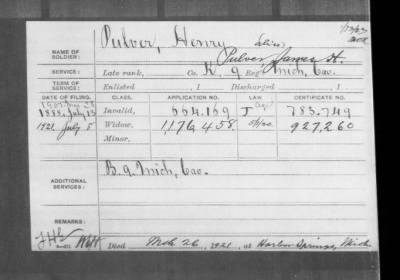 NAME OF SOLDIER:
Pulver, Henry
alias
Pulver, James H.
SERVICE:
Late rank, Co. K, 9 Reg't Mich, Cav.
TERM OF SERVICE:
Enlisted , 1 Discharged , 1
DATE OF FILING. CLASS. APPLICATION NO. LAW. CERTIFICATE NO.
1888, July 13 Invalid, 664.169 J 783.749
1921 July 5 Widow, 1176458. 927,260
Minor,
ADDITIONAL SERVICES:
B. 9. Mich, Cav.
REMARKS:
Died Mch. 26, 1921, at Harbor Springs, Mich